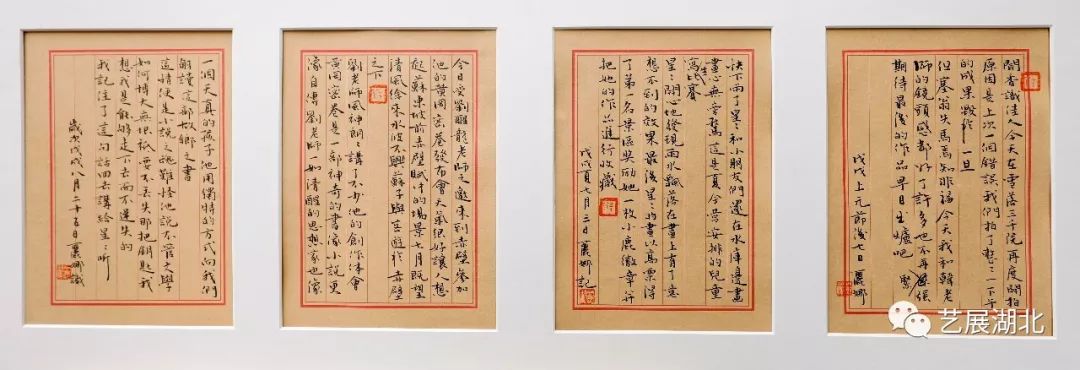 聞香識佳人今天在雪落三千院再度開拍
原因是上次一個錯誤我們拍了整三一下午
的成果毀於一旦
但塞翁失馬焉知非福今天我和韓老
師的鏡頭感都好了許多也不再緊張
期待最後的作品早日出爐吧
戊戌上元節後七日襄娜
訣下雨了星々和小朋友們還在水庫邊畫
畫心無旁騖這是夏令營安排的兒童
寫生比賽
星々開心地發現雨水飄落在畫上有了意
想不到的效果最後星々的畫以高票得
了第一名景區獎勵她一枚小鹿徽章并
把她的作品進行收藏
戊戌夏七月三日襄娜記
今日受劉醒龍老師之邀來到赤壁參加
他的黃岡秘卷發布會天氣很好讓人想
起蘇東坡前赤壁賦中的場景七月既望
清風徐來水波不興蘇子與客遊於赤壁
之下
劉老師風神朗々講了不少他的創作体會
黃岡秘卷是一部神奇的書像小說更
像自傳劉老師一如清醒的思想家也像
一個天真的孩子他用獨特的方式向我們
解讀這部故鄉之書
這情便是小說之魂難怪他說不管文學
如何博大無垠都不要丟失那把鑰匙我
想我是能够走下去而不迷失的
我記住了這句話回去講給星々听
歲次戊戌八月二十五日襄娜識
艺展湖北